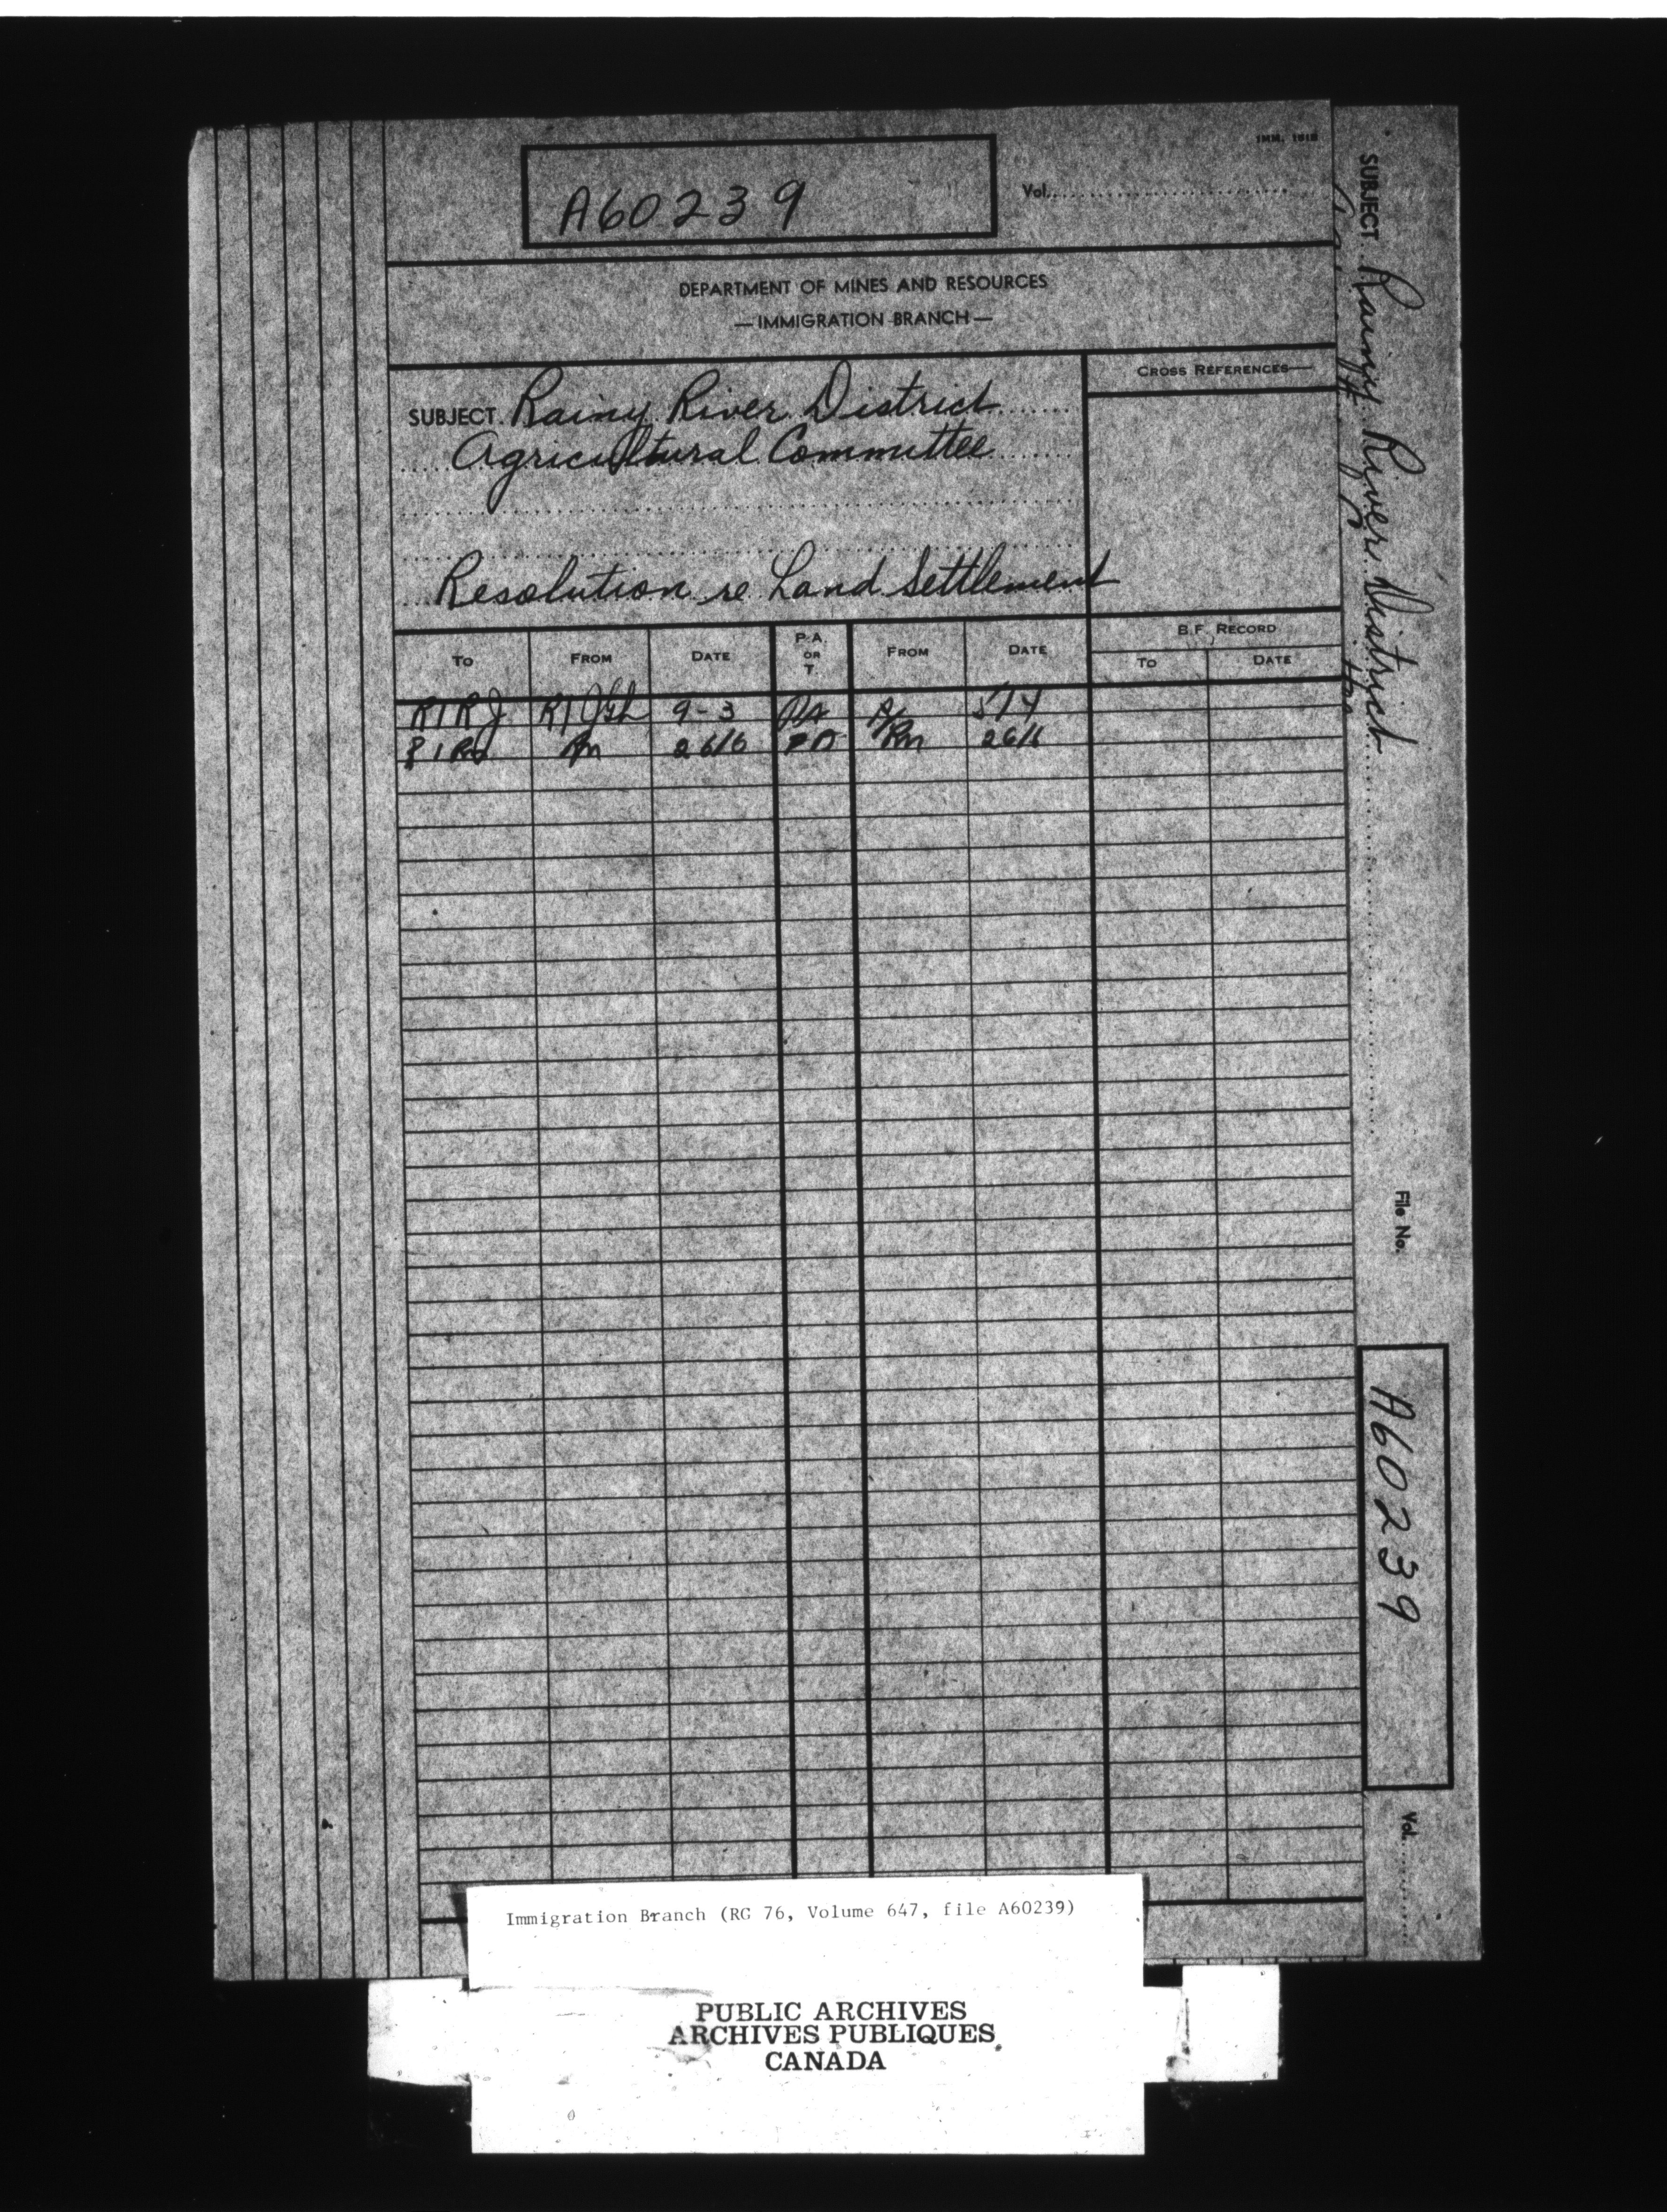 IMM. 1018
A60239
Vol.
DEPARTMENT OF MINES AND RESOURCES
— IMMIGRATION BRANCH —
CROSS REFERENCES—
SUBJECT Rainy River District
Agricultural Committee
Resolution re Land Settlement
TO FROM DATE P.A. OR T. FROM DATE B.F. RECORD
TO DATE
9-3 PA 5/4
26/6 PA Rm 26/6
SUBJECT Rainy River District
File No.
A60239
Vol.
Immigration Branch (RG 76, Volume 647, file A60239)
PUBLIC ARCHIVES
ARCHIVES PUBLIQUES
CANADA